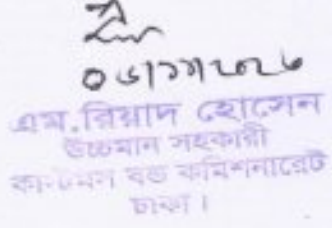 ০৬/১১/২০২৬
এম.রিয়াদ হোসেন
উচ্চমান সহকারী
কাস্টমস বন্ড কমিশনারেট
ঢাকা।